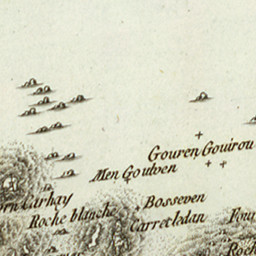 Gouren Gouirou
Men Goulven
Carhay
Bosseven
Roche blanche
Carretledan
Four
Roch